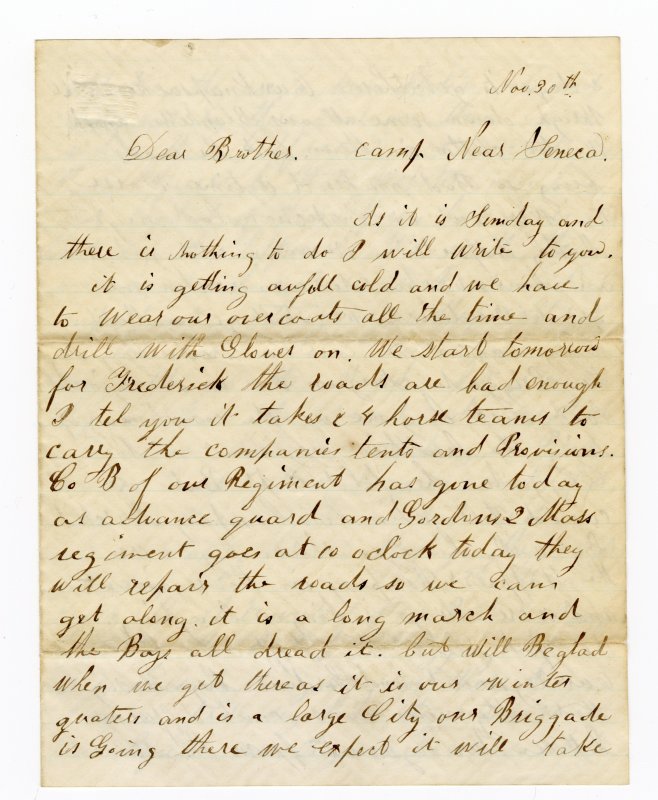 Nov. 30th
Dear Brother. Camp Near Seneca.
As it is Sunday and
there is Nothing to do I will write to you.
it is getting awfull cold and we have
to wear our overcoats all the time and
drill with Gloves on. We start tomorrow
for Frederick the roads are bad enough
I tel you it takes 2 4 horse teams to
carry the companies tents and Provisions.
Co B of our Regiment has gone today
as advance guard and Gordons 2 Mass
regiment goes at 10 oclock today they
will repair the roads so we can
get along. it is a long march and
the Boys all dread it. but will Be glad
when we get there as it is our winter
quaters and is a large City our Briggade
is Going there we expect it will take